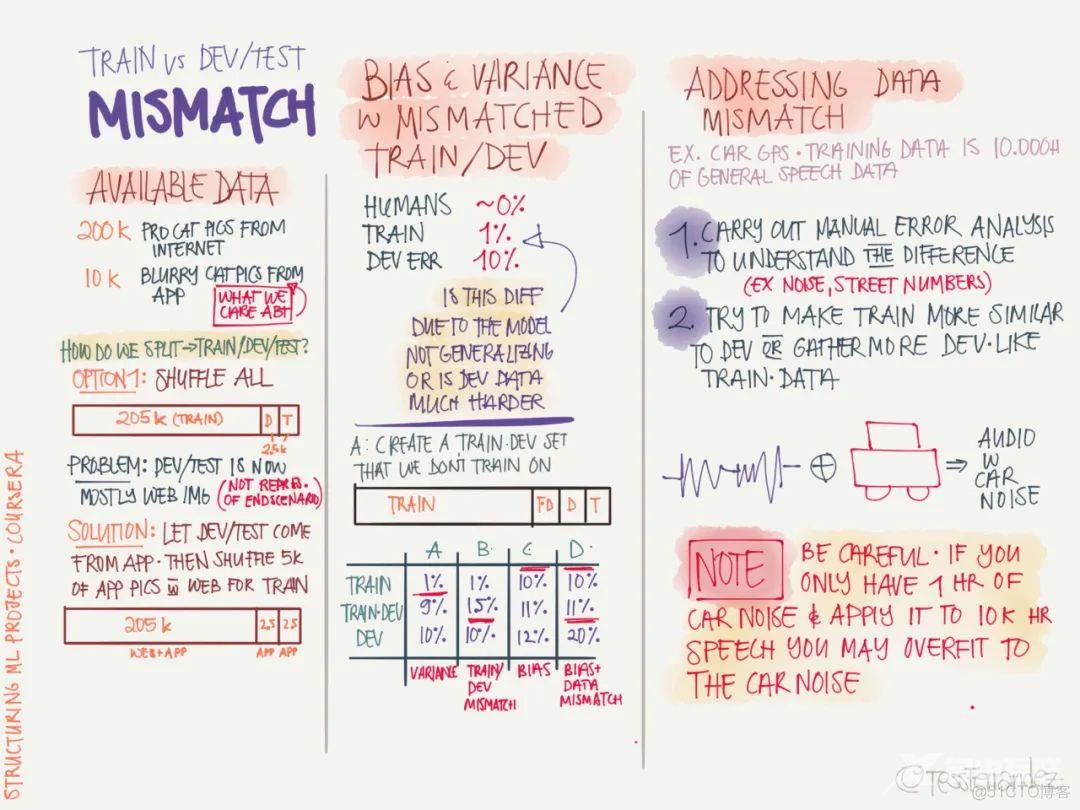 TRAIN VS DEV/TEST
MISMATCH
AVAILABLE DATA
200K PRO CAT PICS FROM
INTERNET
10K BLURRY CAT PICS FROM
APP
WHAT WE
CARE ABT
HOW DO WE SPLIT→TRAIN/DEV/TEST?
OPTION1: SHUFFLE ALL
205K (TRAIN) D T
2.5K
PROBLEM: DEV/TEST IS NOW
MOSTLY WEB IMG (NOT REPRES.
OF ENDSCENARIO)
SOLUTION: LET DEV/TEST COME
FROM APP. THEN SHUFFLE 5K
OF APP PICS W WEB FOR TRAIN
205K 2.5 2.5
WEB+APP APP APP
BIAS & VARIANCE
W MISMATCHED
TRAIN/DEV
HUMANS ~0%
TRAIN 1%
DEV ERR 10%
IS THIS DIFF
DUE TO THE MODEL
NOT GENERALIZING
OR IS DEV DATA
MUCH HARDER
A: CREATE A TRAIN-DEV SET
THAT WE DON'T TRAIN ON
TRAIN D D T
A B C D
TRAIN 1% 1% 10% 10%
TRAIN-DEV 9% 15% 11% 11%
DEV 10% 10% 12% 20%
VARIANCE TRAIN/ BIAS BIAS+
DEV DATA
MISMATCH MISMATCH
ADDRESSING DATA
MISMATCH
EX. CAR GPS · TRAINING DATA IS 10.000H
OF GENERAL SPEECH DATA
1. CARRY OUT MANUAL ERROR ANALYSIS
TO UNDERSTAND THE DIFFERENCE
(EX NOISE, STREET NUMBERS)
2. TRY TO MAKE TRAIN MORE SIMILAR
TO DEV OR GATHER MORE DEV-LIKE
TRAIN-DATA
AUDIO
W
CAR
NOISE
NOTE
BE CAREFUL · IF YOU
ONLY HAVE 1 HR OF
CAR NOISE & APPLY IT TO 10K HR
SPEECH YOU MAY OVERFIT TO
THE CAR NOISE
STRUCTURING ML PROJECTS · COURSERA
@TessFerrandez
@51CTO博客